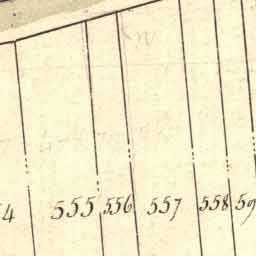 555 556 557 558